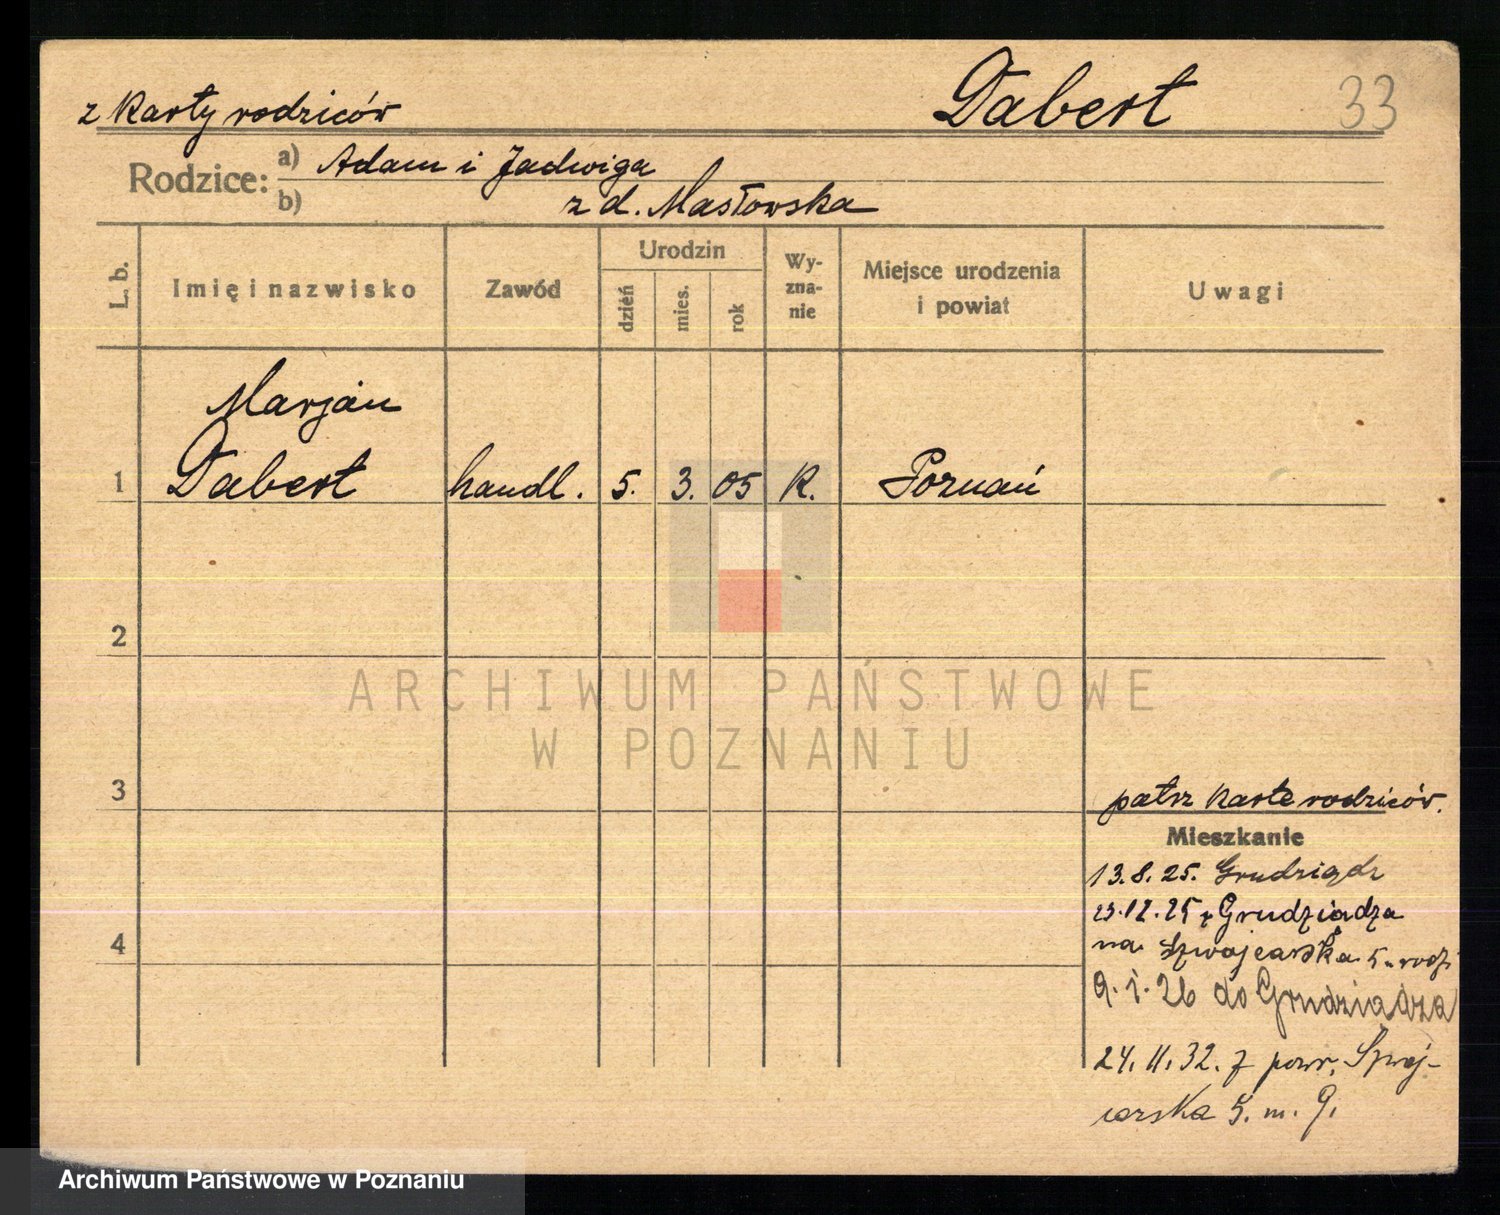 z karty rodziców
Dabert
33
Rodzice:
a) Adam i Jadwiga
b) z d. Masłowska
L. b.
Imię i nazwisko
Zawód
Urodzin
dzień
mies.
rok
Wy-
zna-
nie
Miejsce urodzenia
i powiat
Uwagi
Marjan
1 Dabert handl. 5. 3. 05 K. Poznań
2
ARCHIWUM PAŃSTWOWE
W POZNANIU
3
patrz kartę rodziców.
Mieszkanie
13.8.25. Grudziądz
23.12.25 z Grudziądza
4
na Szwajcarska 5 u rodz
9.1.26 do Grudziądza
24.11.32. z powr. Szwaj-
carska 5. m. 9.
Archiwum Państwowe w Poznaniu